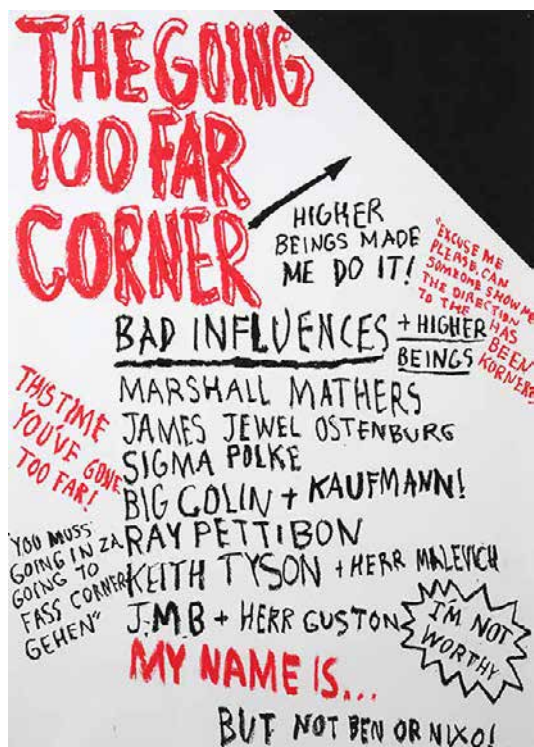 THE GOING
TOO FAR
CORNER
HIGHER
BEINGS MADE
ME DO IT!
"EXCUSE ME
PLEASE, CAN
SOMEONE SHOW ME
THE DIRECTION
TO THE HAS
BEEN
KORNER?"
BAD INFLUENCES + HIGHER
BEINGS
MARSHALL MATHERS
JAMES JEWEL OSTENBURG
SIGMA POLKE
BIG COLIN + KAUFMANN!
RAY PETTIBON
KEITH TYSON + HERR MALEVICH
J.M.B + HERR GUSTON
THIS TIME
YOU'VE GONE
TOO FAR!
"YOU MUSS
GOING IN ZA
GOING TO
FASS CORNER
GEHEN"
I'M NOT
WORTHY
MY NAME IS...
BUT NOT BEN OR NIXO!